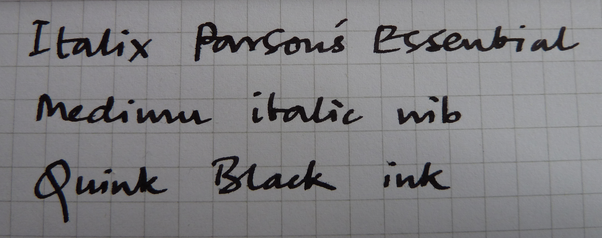 Italix Parson's Essential
Medium italic nib
Quink Black ink